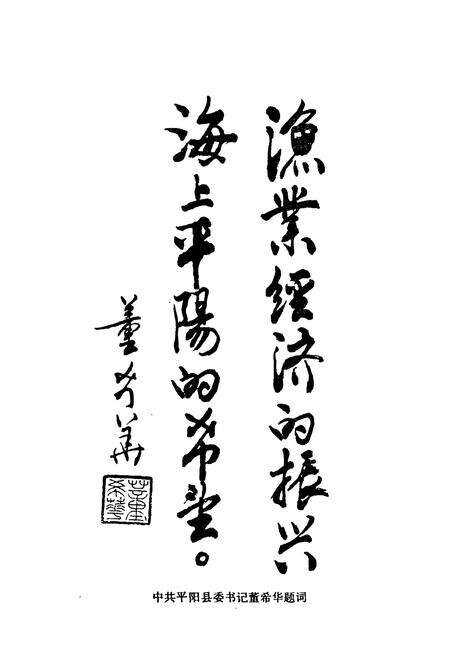 漁業經济的振兴
海上平陽的希望。
董希华
董希華
中共平阳县委书记董希华题词